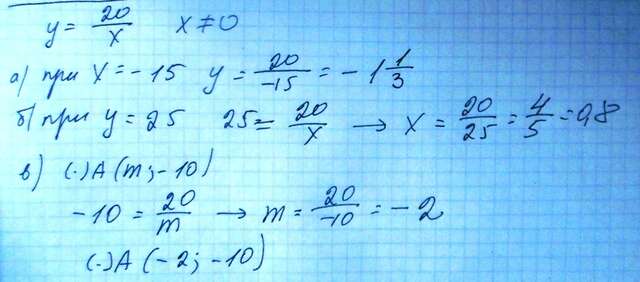 y = 20/x x ≠ 0
а) при x = -15 y = 20/-15 = -1 1/3
б) при y = 25 25 = 20/x → x = 20/25 = 4/5 = 0,8
в) (·) A (m; -10)
-10 = 20/m → m = 20/-10 = -2
(·) A (-2; -10)